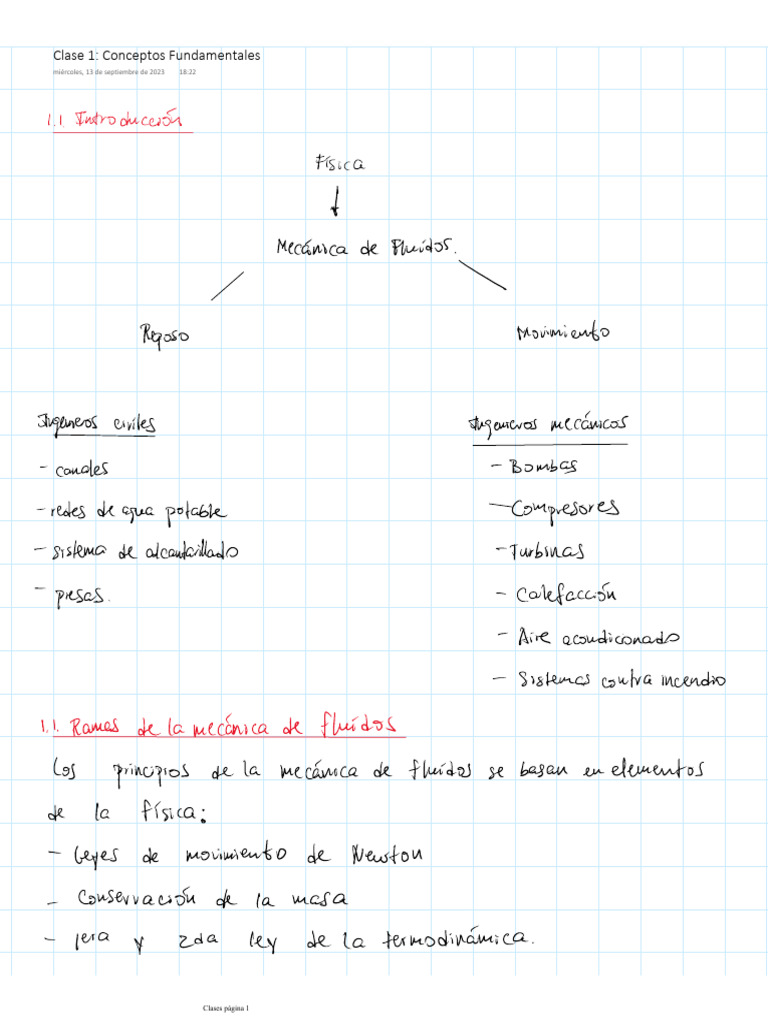 Clase 1: Conceptos Fundamentales
miércoles, 13 de septiembre de 2023 18:22
1.1 Introducción
Física
Mecánica de Fluídos.
Reposo
Movimiento
Ingenieros civiles
- canales
- redes de agua potable
- sistema de alcantarillado
- presas.
Ingenieros mecánicos
- Bombas
- Compresores
- Turbinas
- Calefacción
- Aire acondiconado
- Sistemas contra incendio
1.1. Ramas de la mecánica de fluídos
Los principios de la mecánica de fluídos se basan en elementos
de la física:
- Leyes de movimiento de Newton
- Conservación de la masa
- 1era y 2da ley de la termodinámica.
Clases página 1